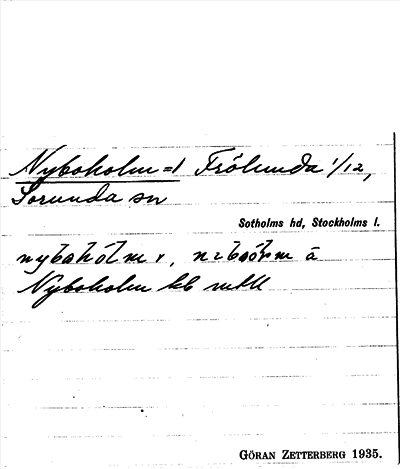 Nyboholm=1 Frölunda 1/12,
Sorunda sn
Sotholms hd, Stockholms l.
nybohólm
Nyboholm kb mtll
GÖRAN ZETTERBERG 1935.